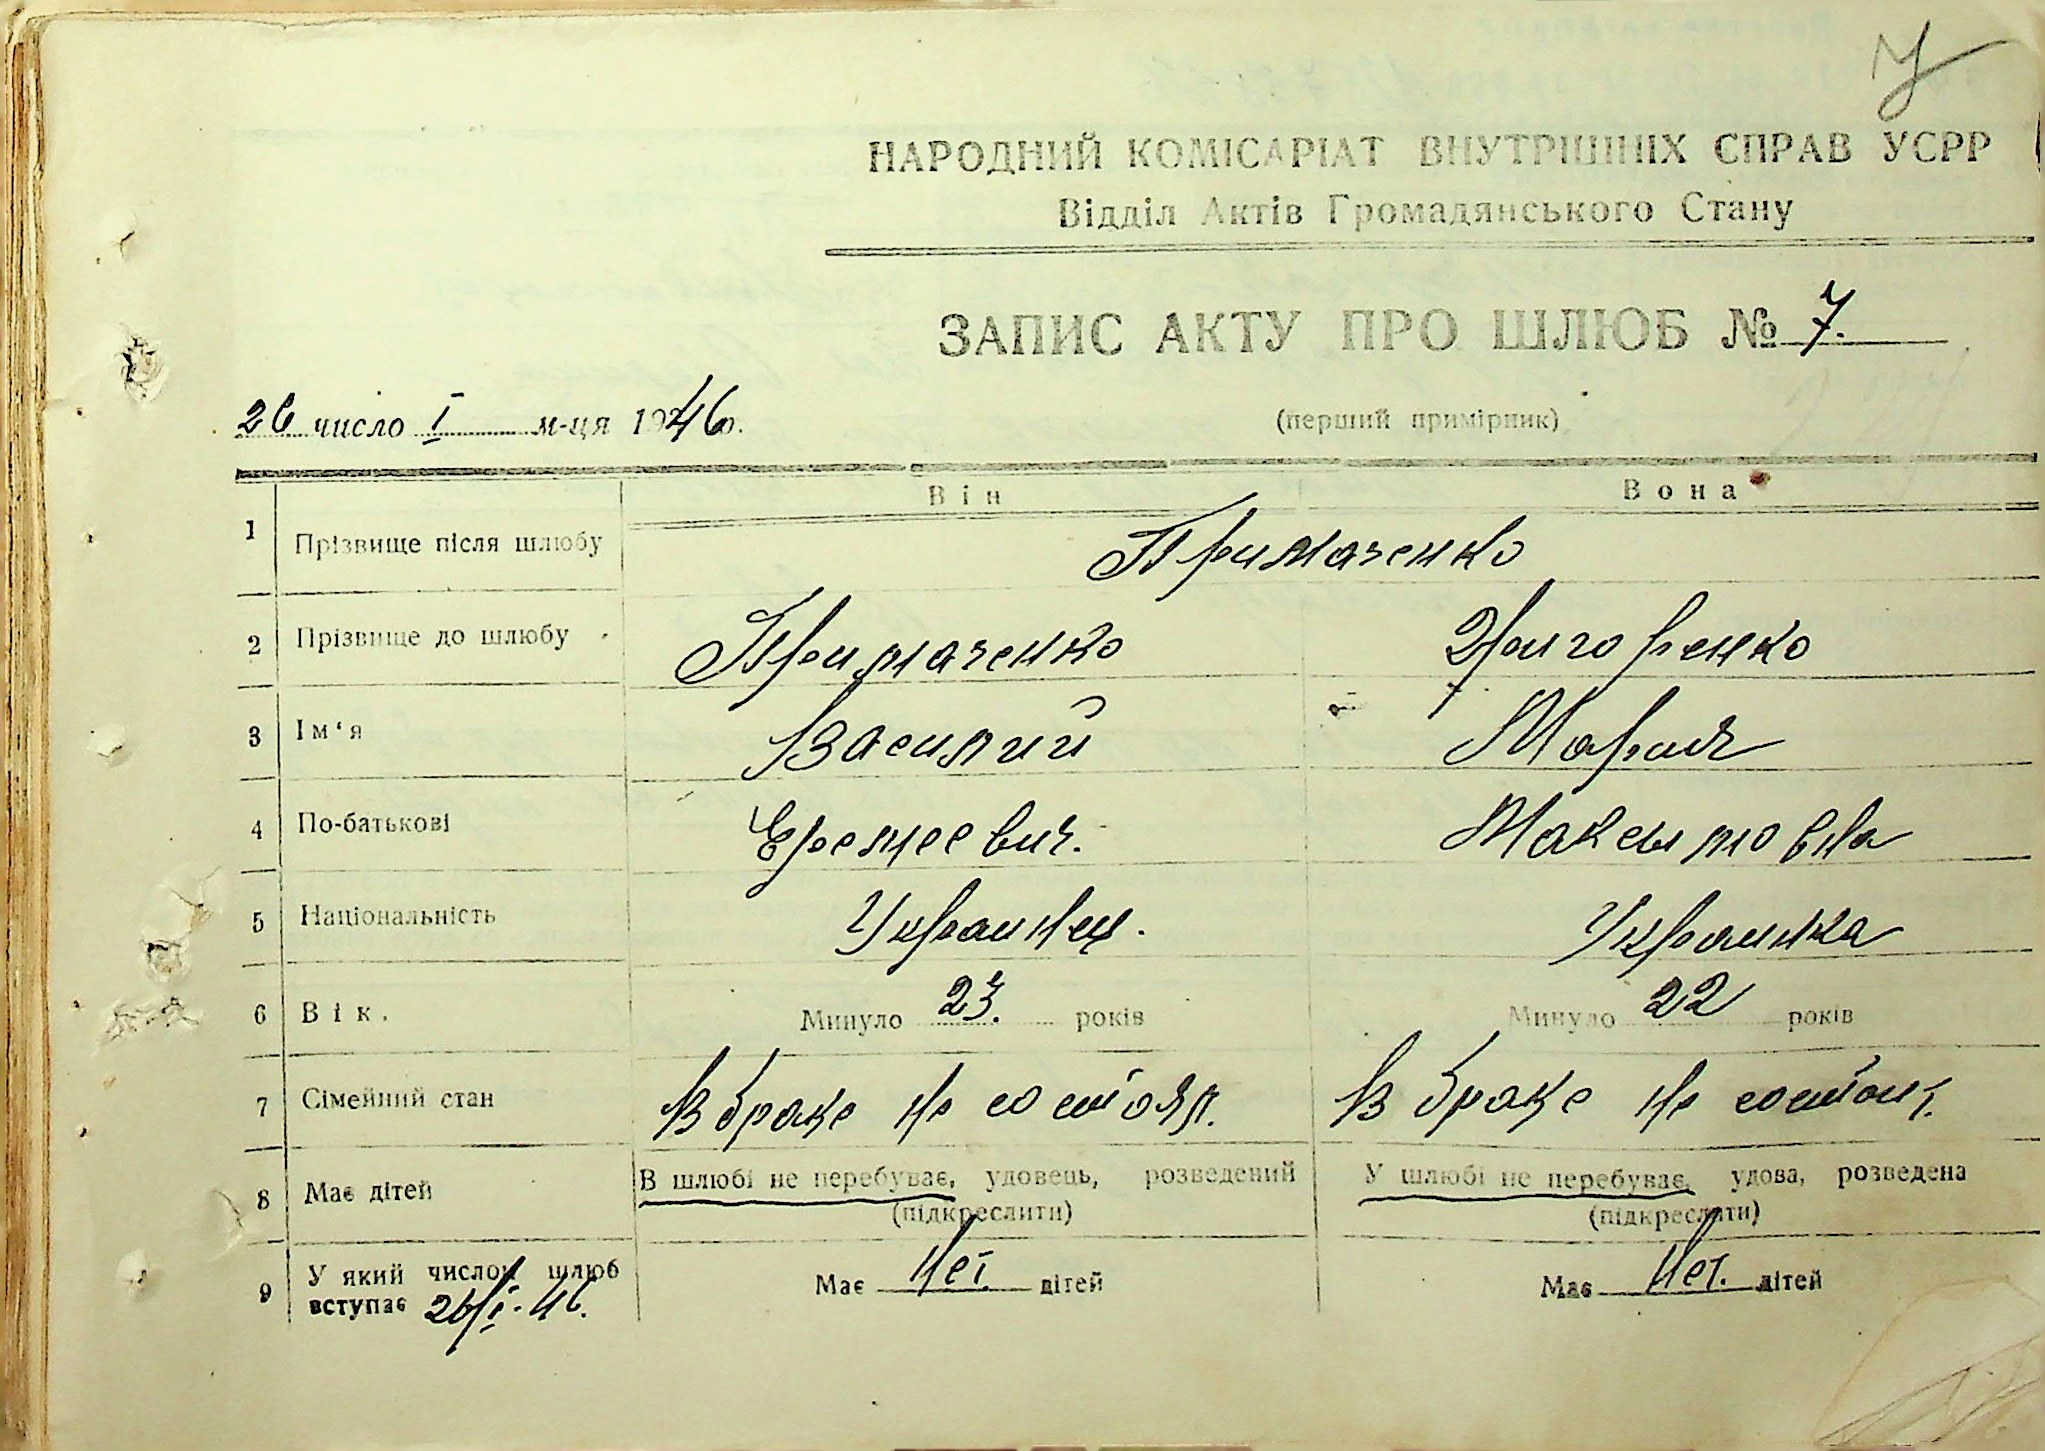 У
НАРОДНИЙ КОМІСАРІАТ ВНУТРІШНІХ СПРАВ УСРР
Відділ Актів Громадянського Стану
ЗАПИС АКТУ ПРО ШЛЮБ № 7.
26 число I м-ця 1946 р.
(перший примірник)
Він Вона
1 Прізвище після шлюбу Примаченко
2 Прізвище до шлюбу Примаченко Григоренко
3 Ім'я Василий Мария
4 По-батькові Еремеевич. Максимовна
5 Національність Украинец. Украинка
6 Вік. Минуло 23. років Минуло 22 років
7 Сімейний стан В браке не состоял. В браке не сост
8 Має дітей В шлюбі не перебуває, удовець, розведений У шлюбі не перебуває, удова, розведена
(підкреслити) (підкреслити)
9 У який число шлюб Має Нет. дітей Має Нет. дітей
вступає 26/I-46.